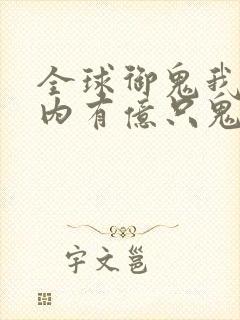 全球御鬼我
内有億只鬼
宇文邕